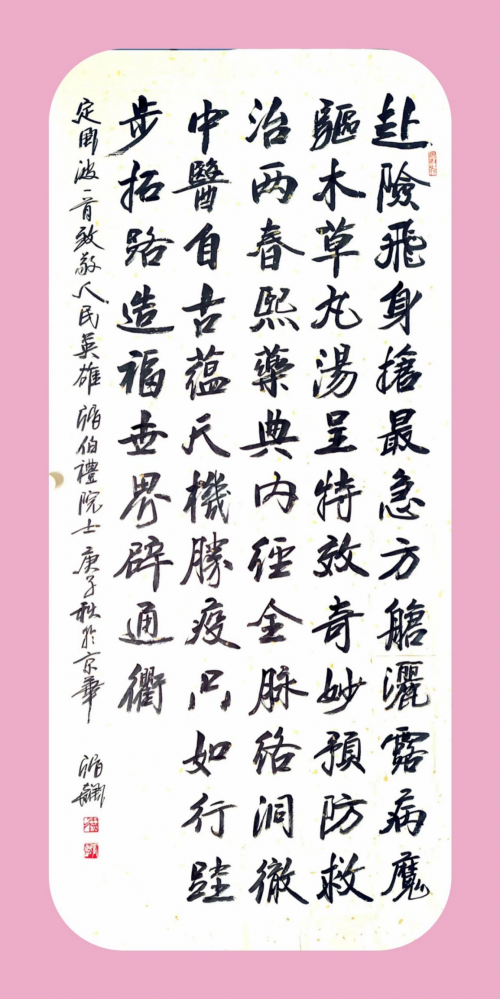 赴險飛身搶最急方艙灑露病魔
驅木草丸湯呈特效奇妙預防救
治两春熙藥典内經全脉络洞徹
中醫自古蕴天機勝疫只如行跬
步拓路造福世界辟通衢
定風波一首致敬人民英雄張伯禮院士庚子秋於京華